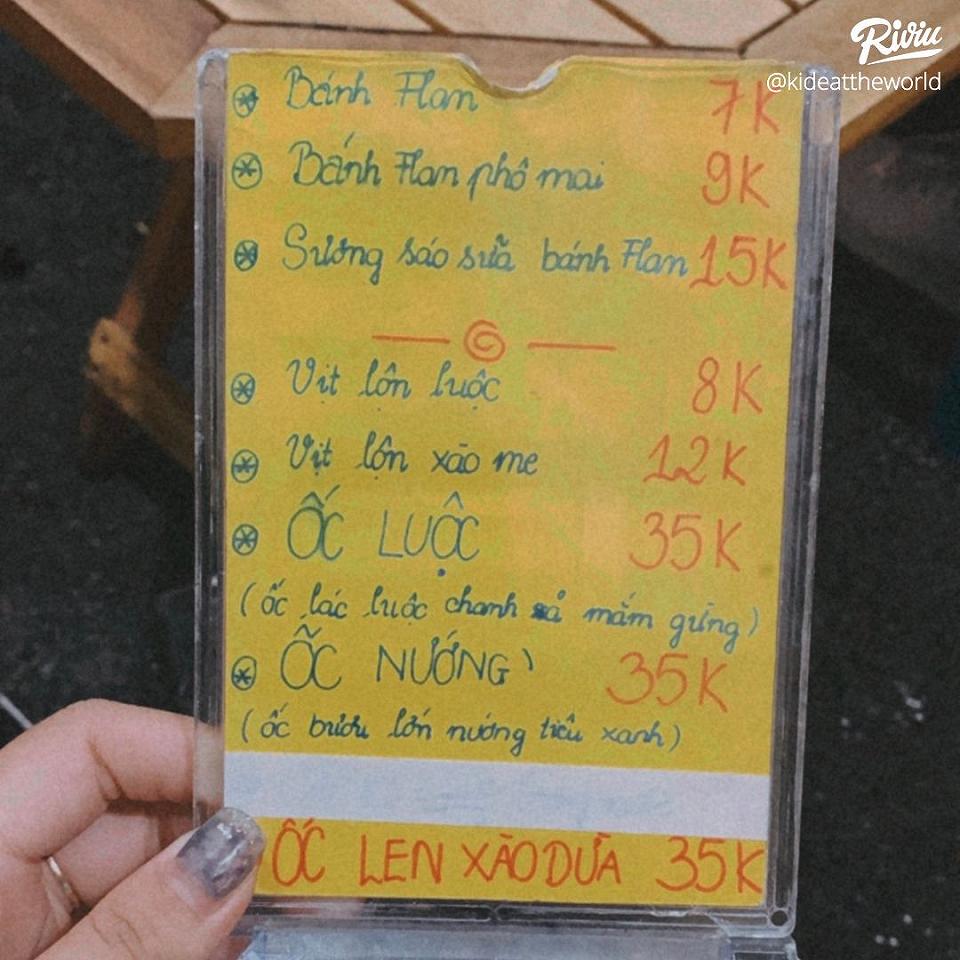 Riviu
@kideattheworld
Bánh Flan 7K
Bánh Flan phô mai 9K
Sương sáo sữa bánh Flan 15K
Vịt lộn luộc 8K
Vịt lộn xào me 12K
ỐC LUỘC 35K
(ốc lác luộc chanh sả mắm gừng)
ỐC NƯỚNG 35K
(ốc bươu lớn nướng tiêu xanh)
ỐC LEN XÀO DỪA 35K